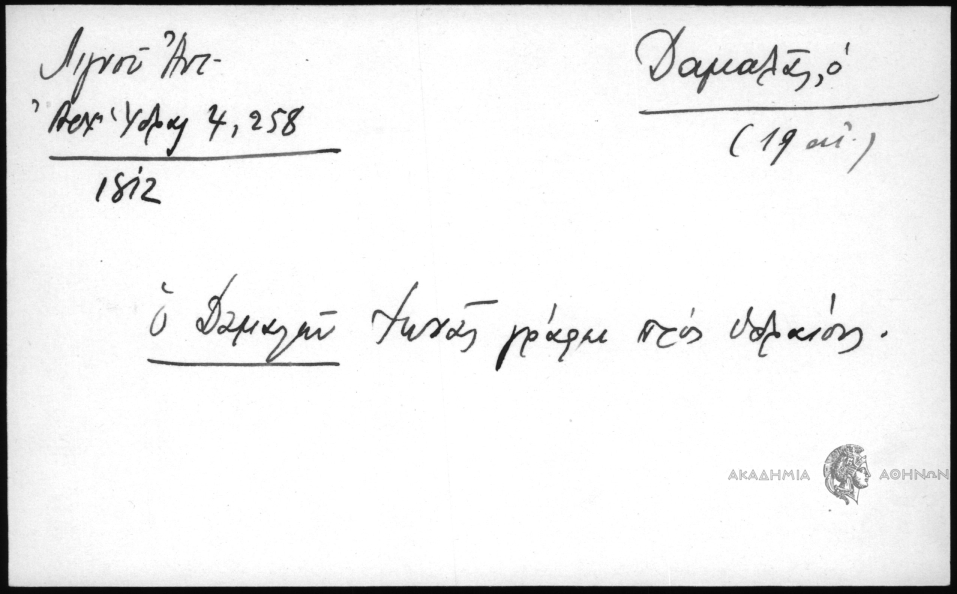 Λιγνοῦ Ἀντ.
Ἀρχ. Ὕδρας 4, 258
1812
Δαμαλᾶς, ὁ
(19 αἰ.)
ὁ Δαμαλῶν Ἰωνᾶς γράφει πρός Ὑδραίους.
ΑΚΑΔΗΜΙΑ ΑΘΗΝΩΝ